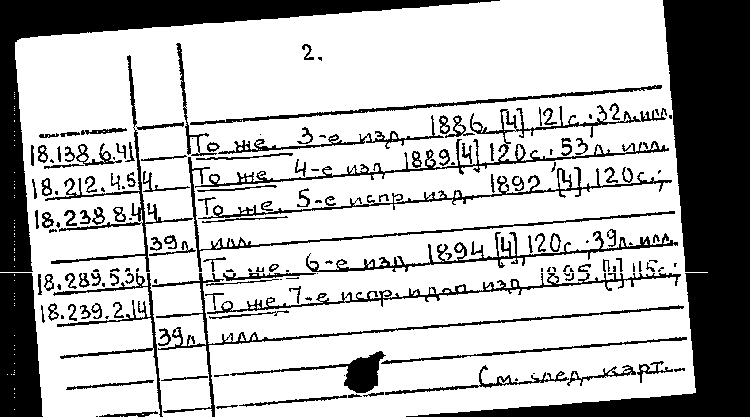 2.
18.138.6.41 То же. 3-е изд. 1886. [4], 121с.; 32л. илл.
18.212.4.54. То же. 4-е изд. 1889. [4], 120с.; 53л. илл.
18.238.8.44. То же. 5-е испр. изд. 1892. [4], 120с.;
39л. илл.
18.289.5.36. То же. 6-е изд. 1894. [4], 120с.; 39л. илл.
18.239.2.14 То же. 7-е испр. и доп. изд. 1895. [4], 115с.;
39л. илл.
См. след. карт.